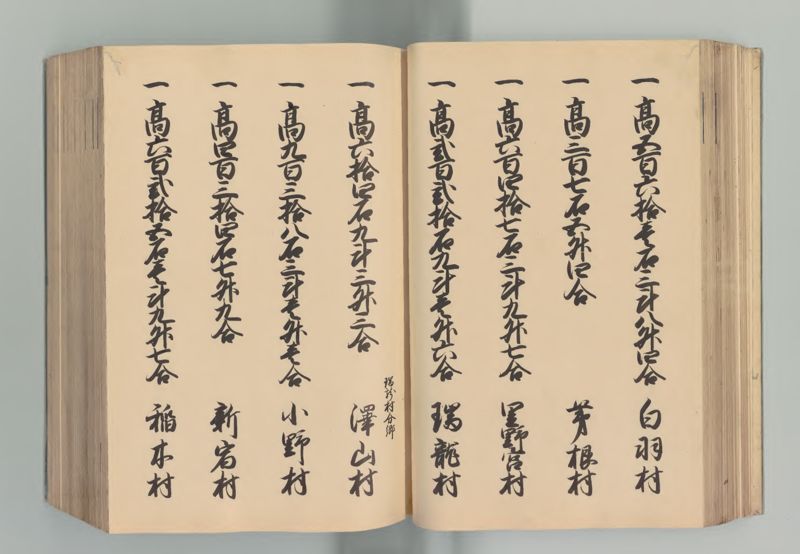 一高五百六拾壱石三斗八升四合 白羽村
一高三百七石五升四合 茅根村
一高六百四拾七石三斗九升七合 里野宮村
一高弐百弐拾石九斗壱升六合 瑞龍村
瑞龍村分郷
一高六拾四石九斗三升二合 澤山村
一高九百三拾八石三斗壱升壱合 小野村
一高四百三拾四石七升九合 新宿村
一高六百弐拾五石壱斗九升七合 稲木村